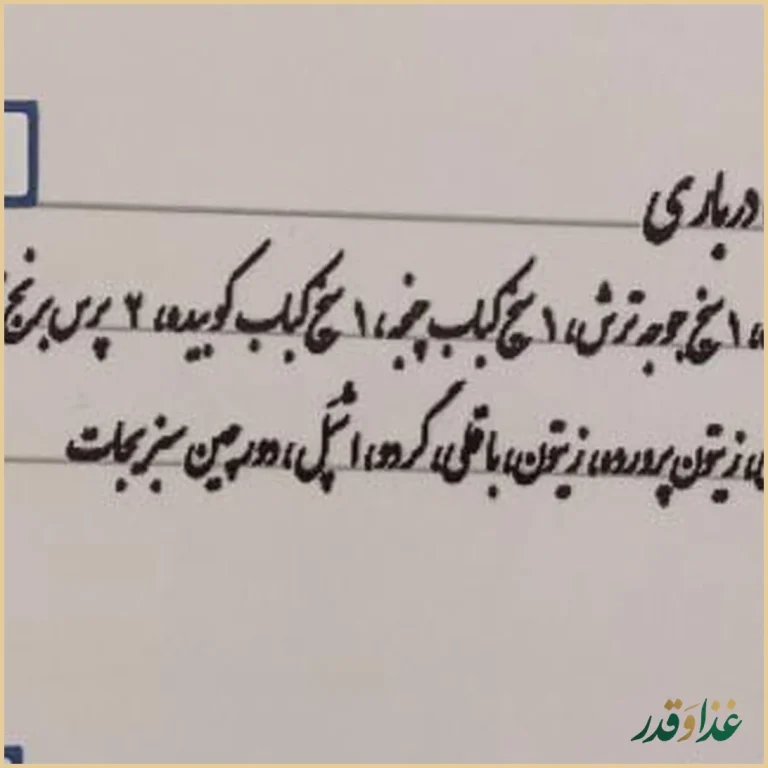 درباری
، ۱ سیخ جوجه ترش، ۱ سیخ کباب چنجه، ۱ سیخ کباب کوبیده، ۲ پرس برنج
، زیتون پرورده، زیتون، باقلی، گردو، اشپل، دورچین سبزیجات
غذا و قدر